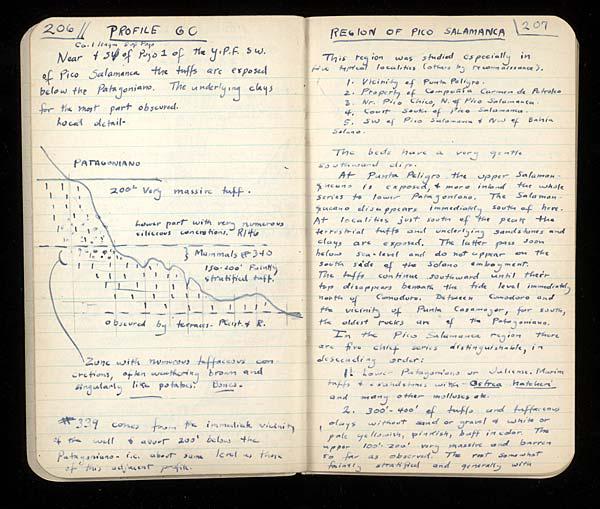 206
PROFILE GC
Near & SW of Pozo 1 of the Y.P.F. SW.
of Pico Salamanca the tuffs are exposed
below the Patagoniano. The underlying clays
for the most part obscured.
Local detail-
PATAGONIANO
200'± Very massive tuff.
Lower part with very numerous
silicious concretions. R146
Mammals @ 340
150-200' Faintly
stratified tuff.
obscured by terraces- Pleist. & R.
Zone with numerous tuffaceous con-
cretions, often weathering brown and
singularly like potatoes. Bones.
#339 comes from the immediate vicinity
of the well & about 200' below the
Patagoniano- i.e. about same level as those
of this adjacent profile.
REGION OF PICO SALAMANCA
207
This region was studied especially in
five typical localities (others by reconnaissance).
1. Vicinity of Punta Peligro.
2. Property of Compañia Carmen de Petroleo
3. Nr. Pico Chico, N. of Pico Salamanca.
4. Court South of Pico Salamanca.
5. SW of Pico Salamanca & NW of Bahia
Solano.
The beds have a very gentle
southward dip.
At Punta Peligro the upper Salaman-
queano is exposed, & more inland the whole
series to lower Patagoniano. The Salaman-
queano disappears immediately south of here.
At localities just south of the peak the
terrestrial tuffs and underlying sandstones and
clays are exposed. The latter pass soon
below sea-level and do not appear on the
south side of the Solano embayment.
The tuffs continue southward until their
top disappears beneath the tide level immediately
north of Comodoro. Between Comodoro and
the vicinity of Punta Casamayor, far south,
the oldest rocks are of the Patagoniano.
In the Pico Salamanca region there
are five chief series distinguishable, in
descending order:
1. Lower Patagoniano or Juliense. Marine
tuffs & sandstones with Ostrea hatcheri
and many other molluscs etc.
2. 300'-400' of tuffs and tuffaceous
clays without sand or gravel & white or
pale yellowish, pinkish, buff in color. The
upper 100'-200' very massive and barren
so far as observed. The rest somewhat
faintly stratified and generally with